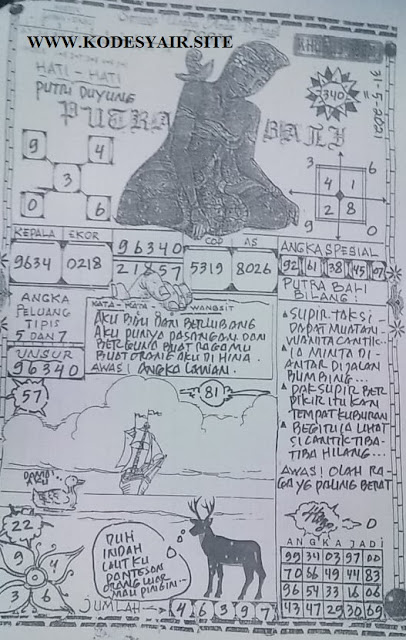 WWW.KODESYAIR.SITE
HATI - HATI
PUTRI DUYUNG
PUTRA BALI
2340
31-5-2021
9 4
3
0 6
3 6
4 1
2 8
9 0
KEPALA EKOR
9634 0218
96340
21857
COP AS
5319 8026
ANGKA SPESIAL
92 61 38 45 07
ANGKA
PELUANG
TIPIS
5 DAN 7
UNSUR
96340
KATA - KATA - WANGSIT
AKU DIRI DAN BERLUBANG
AKU PUNYA PASANGAN DAN
BERGUNA BUAT RAGAMU
BUAT ORANG AKU DI HINA.
AWAS! ANGKA LAWAN.
PUTRA BALI
BILANG:
SUPIR TAKSI
DAPAT MUATAN
WANITA CANTIK..
IA MINTA DI-
ANTAR DI JALAN
PAK SUPIR BER
PIKIR ITU KAN
TEMPAT KUBURAN
BEGITU IA LIHAT
SI CANTIK TIBA-
TIBA HILANG...
AWAS! OLAH RA-
GA YG PALING BERAT
57
81
DAMAI
22
9 4
3 6
DUH
INDAH
LAUTKU
PANTESAN
ORANG LUAR
MAU PINGIN...
0
ANGKA JADI
99 34 03 97 00
70 66 49 44 83
96 54 33 16 06
43 47 29 30 69
JUMLAH → 4 6 3 9 7